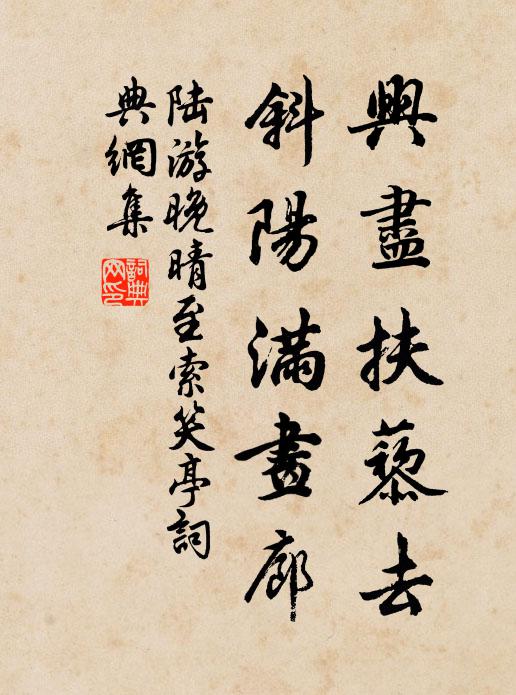 興盡扶藜去
斜陽滿畫廊
陸游晚晴至索笑亭詞
典網集
詞典
网印